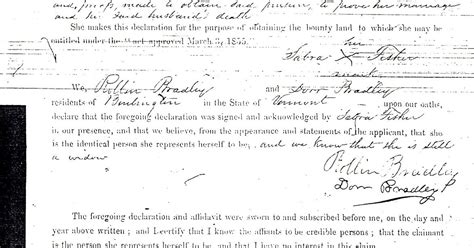 and, proofs, made to obtain said pension, to prove her marriage
and her said husband's death
She makes this declaration for the purpose of obtaining the bounty land to which she may be
entitled under the act approved March 3, 1855.
her
Sabra X Fisher
mark
We, Rollin Bradley and Dorr Bradley
residents of Burlington in the State of Vermont upon our oaths,
declare that the foregoing declaration was signed and acknowledged by Sabra Fisher
in our presence, and that we believe, from the appearance and statements of the applicant, that she
is the identical person she represents herself to be, and we know that she is still
a widow
Rollin Bradley
Dorr Bradley
The foregoing declaration and affidavit were sworn to and subscribed before me, on the day and
year above written; and I certify that I know the affiants to be credible persons; that the claimant
is the person she represents herself to be, and that I have no interest in this claim.